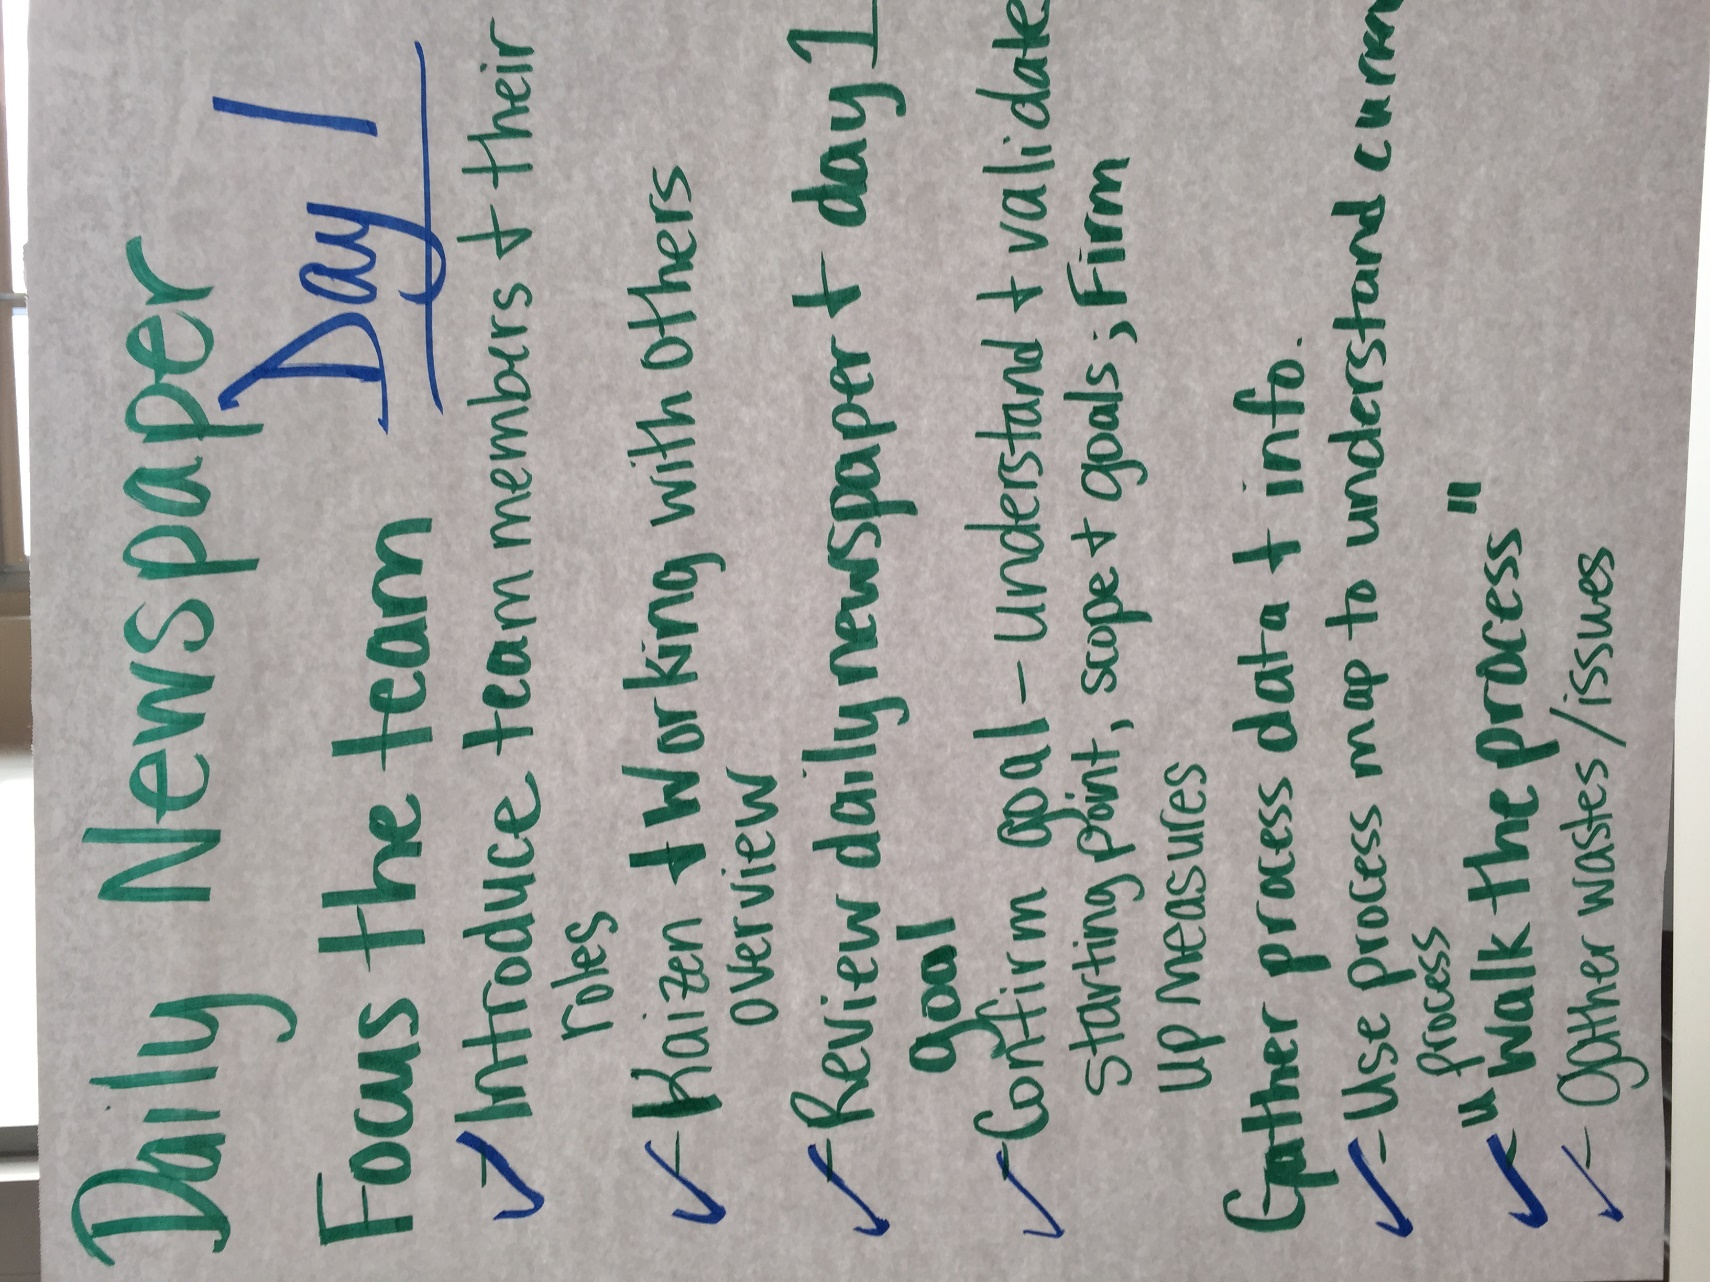 Daily Newspaper
Day 1
Focus the team
- Introduce team members + their
roles
- Kaizen + Working with others
overview
- Review daily newspaper + day 1
goal
- Confirm goal - understand + validate
starting point, scope + goals; Firm
up measures
Gather process data + info.
- Use process map to understand
process
- "Walk the process"
- Gather wastes/issues